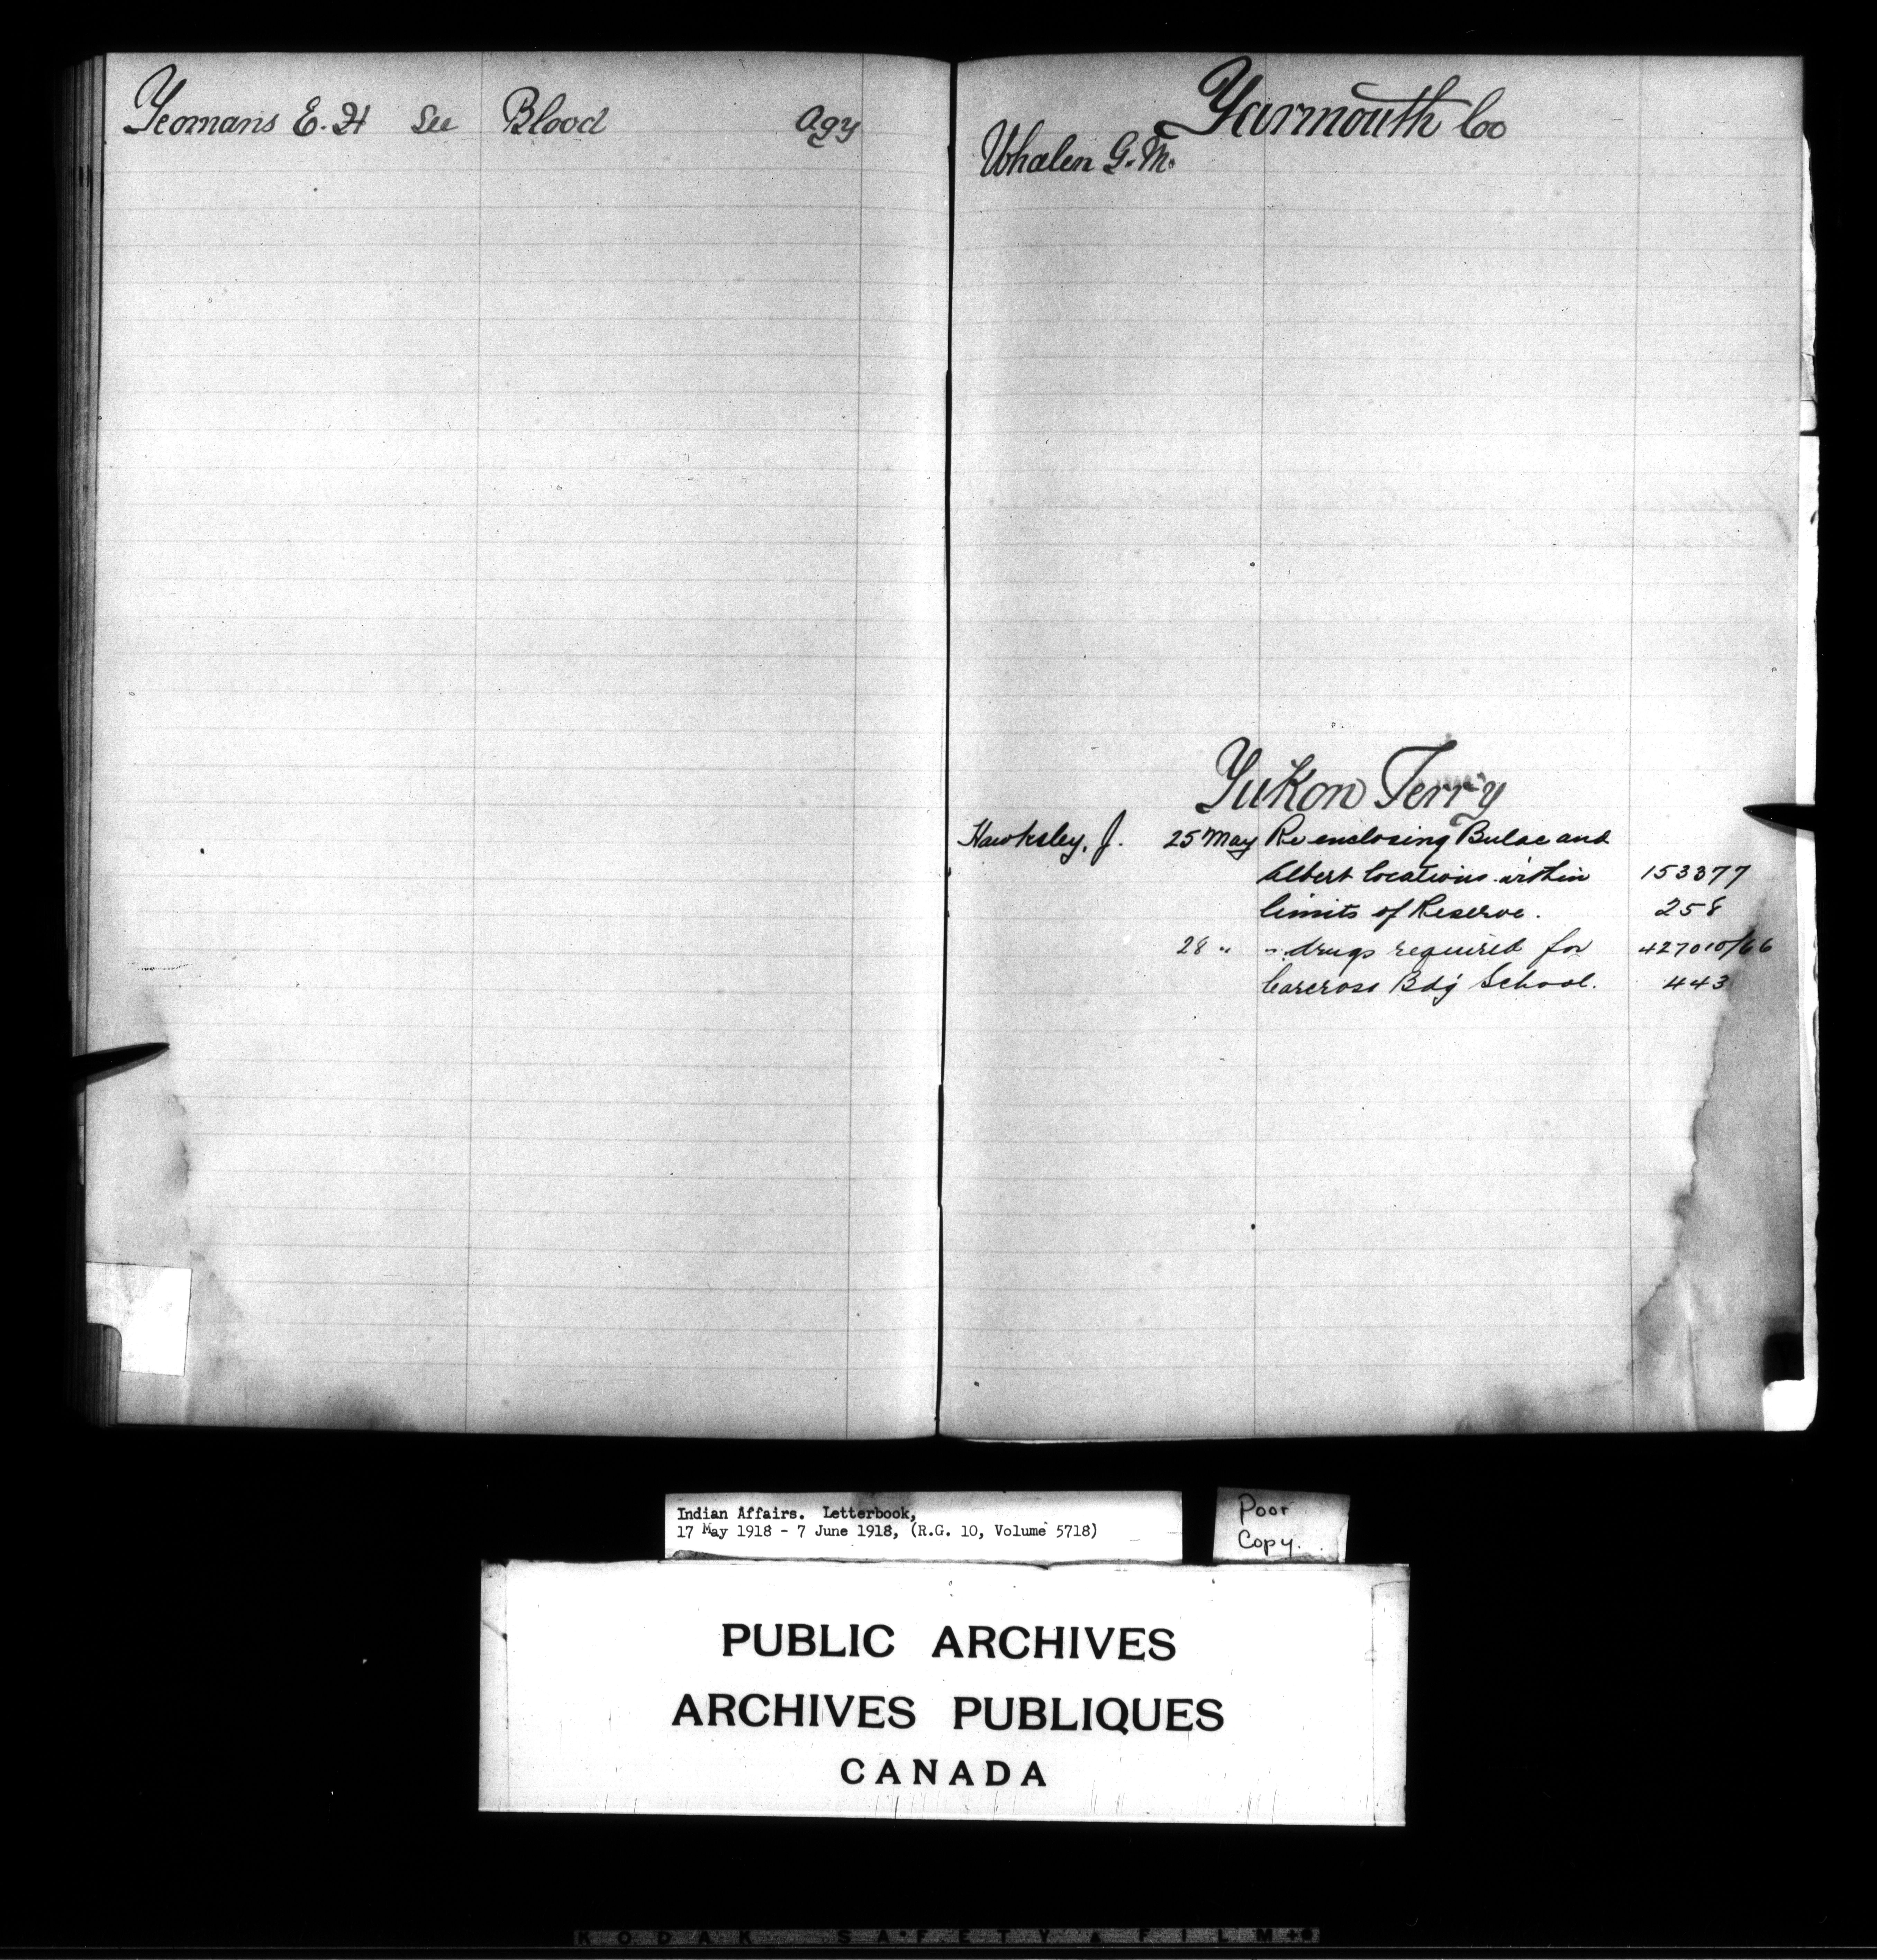 Yeomans E. H See Blood Agy
Yarmouth Co
Whalen G. M.
Yukon Terr'y
Hawksley, J. 25 May Re enclosing Bulae and
Albert locations within 153377
limits of Reserve. 258
28 " " drugs required for 427010/66
Carcross Bdg School. 443
Indian Affairs. Letterbook,
17 May 1918 - 7 June 1918, (R.G. 10, Volume 5718)
Poor
Copy.
PUBLIC ARCHIVES
ARCHIVES PUBLIQUES
CANADA
KODAK SAFETY FILM